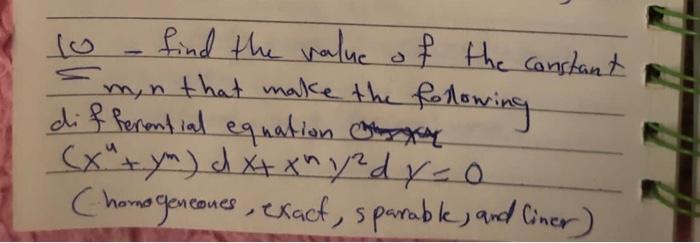 10 - find the value of the constant
m,n that make the following
differential equation
(x⁴ + yᵐ) dx + xⁿ y² dy = 0
(homogeneoues, exact, sparable, and liner)